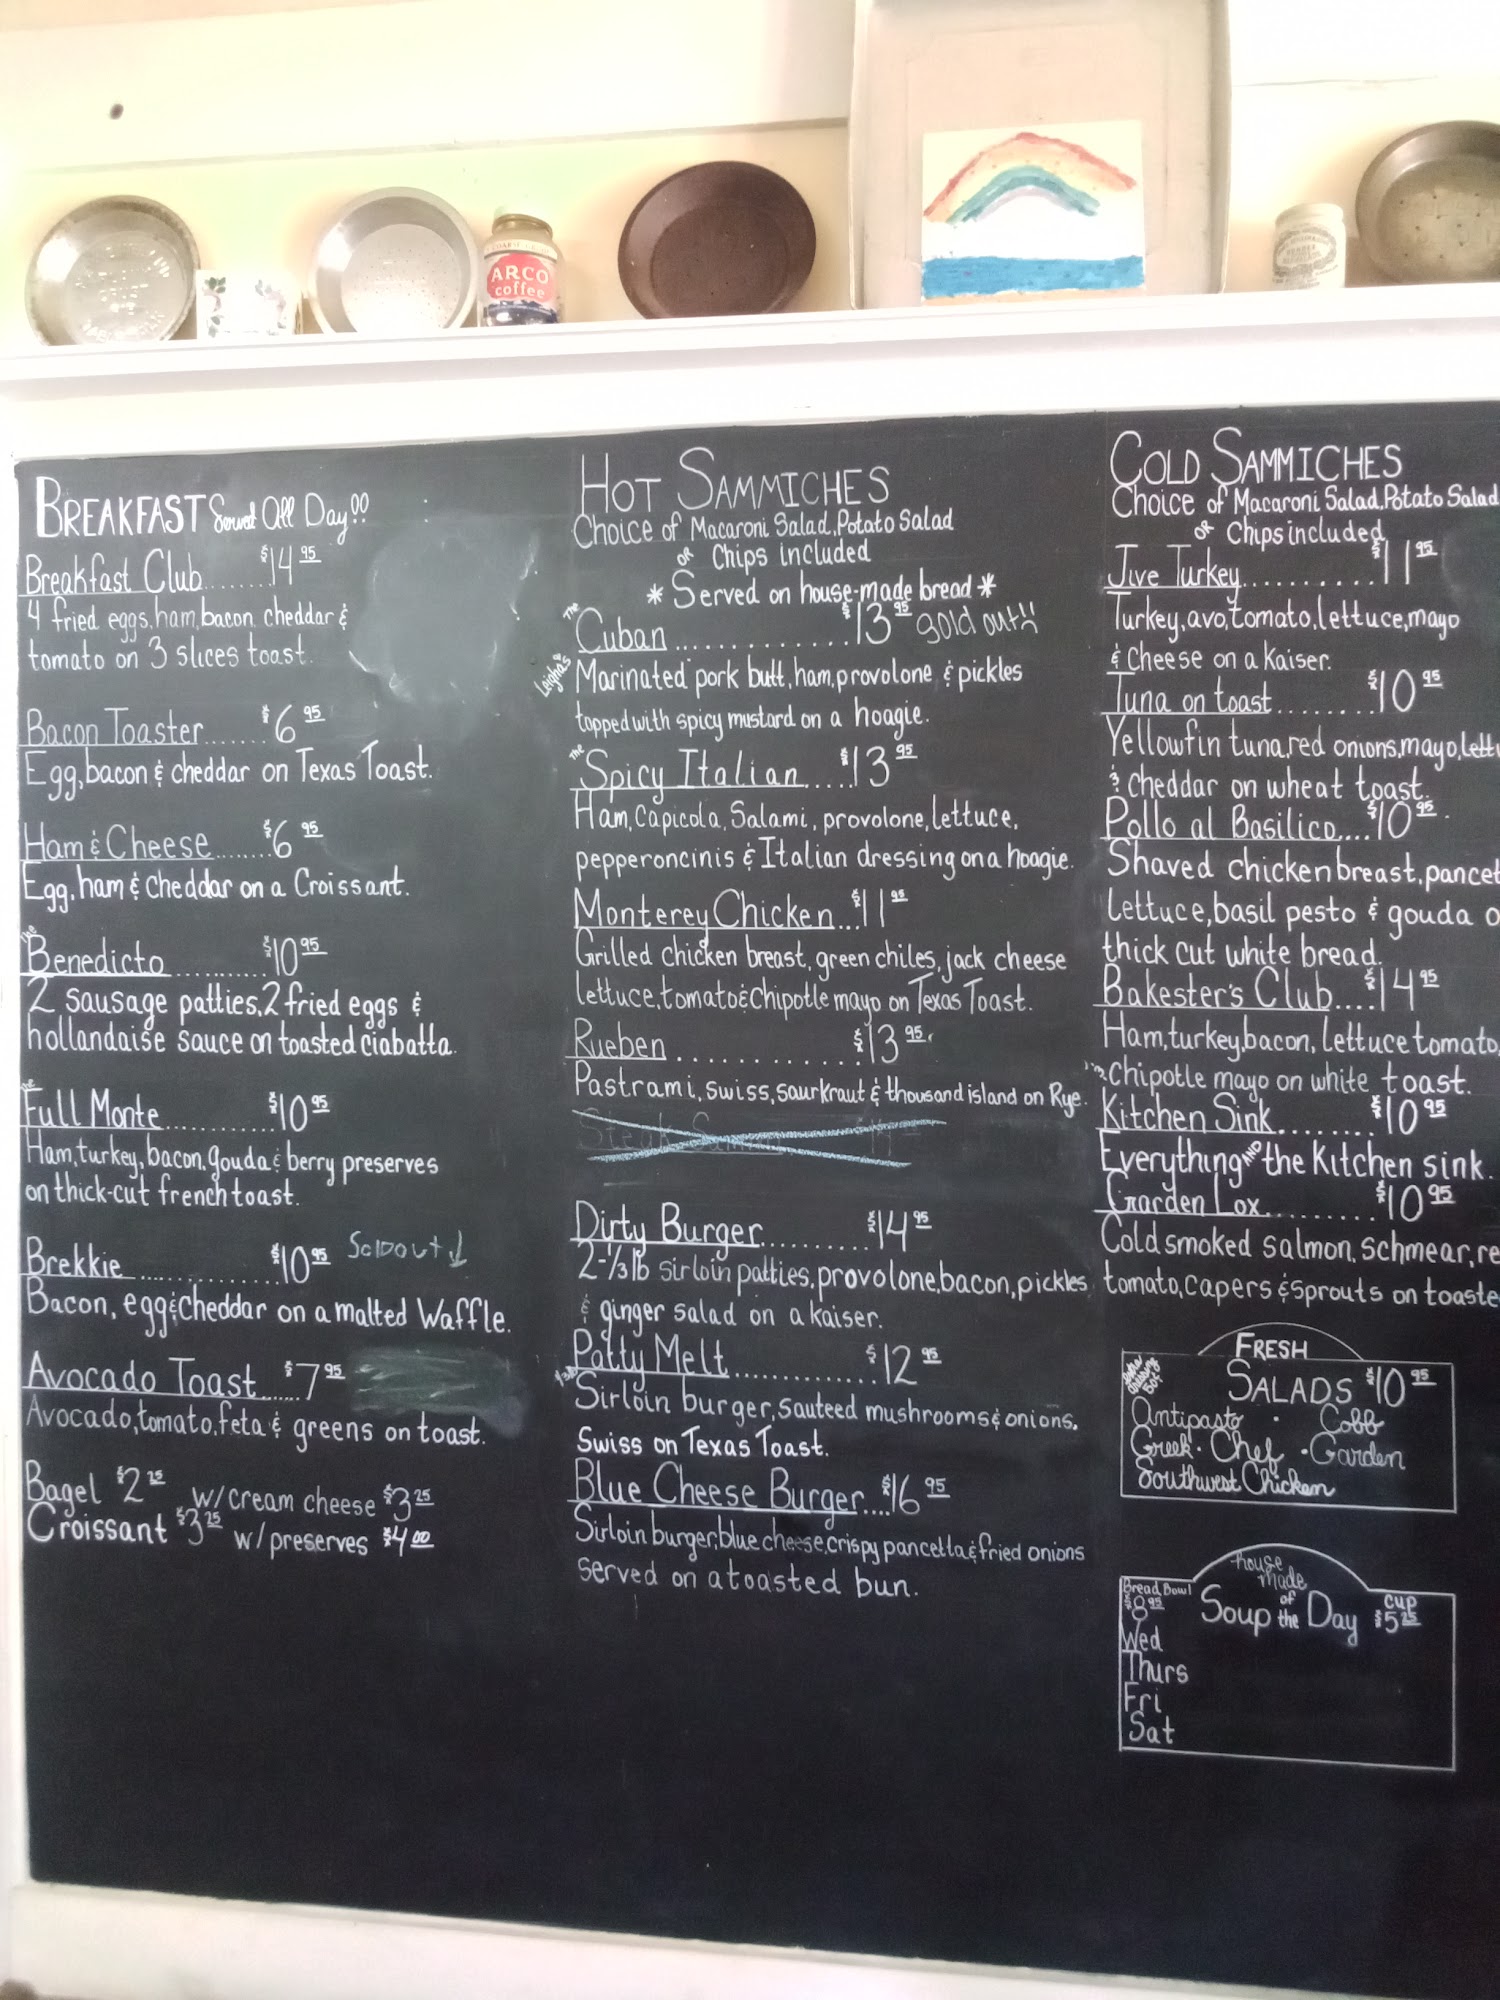 ARCO
coffee
BREAKFAST Served All Day!!
Breakfast Club.......$14.95
4 fried eggs, ham, bacon, cheddar &
tomato on 3 slices toast.
Bacon Toaster.......$6.95
Egg, bacon & cheddar on Texas Toast.
Ham & Cheese.......$6.95
Egg, ham & cheddar on a Croissant.
The Benedicto...........$10.95
2 sausage patties, 2 fried eggs &
hollandaise sauce on toasted ciabatta.
The Full Monte............$10.95
Ham, turkey, bacon, gouda & berry preserves
on thick-cut french toast.
Brekkie...............$10.95 Sold out ↓
Bacon, egg & cheddar on a malted Waffle.
Avocado Toast......$7.95
Avocado, tomato, feta & greens on toast.
Bagel $2.25 w/cream cheese $3.25
Croissant $3.25 w/preserves $4.00
HOT SAMMICHES
Choice of Macaroni Salad, Potato Salad
OR Chips included
* Served on house-made bread *
The Cuban.............$13.95 Sold out!!
Leigha's
Marinated pork butt, ham, provolone & pickles
topped with spicy mustard on a hoagie.
The Spicy Italian.....$13.95
Ham, Capicola, Salami, provolone, lettuce,
pepperoncinis & Italian dressing on a hoagie.
Monterey Chicken...$11.95
Grilled chicken breast, green chiles, jack cheese
lettuce, tomato & Chipotle mayo on Texas Toast.
Rueben............$13.95
Pastrami, swiss, saurkraut & thousand island on Rye.
Steak
Dirty Burger..........$14.95
2-1/3 lb sirloin patties, provolone, bacon, pickles
& ginger salad on a kaiser.
Patty Melt............$12.95
Sirloin burger, sauteed mushrooms & onions,
Swiss on Texas Toast.
Blue Cheese Burger...$16.95
Sirloin burger, blue cheese, crispy pancetta & fried onions
served on a toasted bun.
COLD SAMMICHES
Choice of Macaroni Salad, Potato Salad
OR Chips included
Jive Turkey..........$11.95
Turkey, avo, tomato, lettuce, mayo
& Cheese on a Kaiser.
Tuna on toast........$10.95
Yellowfin tuna, red onions, mayo, lettu
& cheddar on wheat toast.
Pollo al Basilico....$10.95
Shaved chicken breast, pancet
lettuce, basil pesto & gouda o
thick cut white bread.
Bakester's Club....$14.95
Ham, turkey, bacon, lettuce tomato,
chipotle mayo on white toast.
Kitchen Sink........$10.95
Everything AND the Kitchen sink.
Garden Lox.........$10.95
Cold smoked salmon, schmear, re
tomato, capers & sprouts on toaste
FRESH
extra dressing 50¢
SALADS $10.95
Antipasto · Cobb
Greek · Chef · Garden
Southwest Chicken
house made
Bread Bowl $8.95
Soup of the Day
Cup $5.25
Wed
Thurs
Fri
Sat